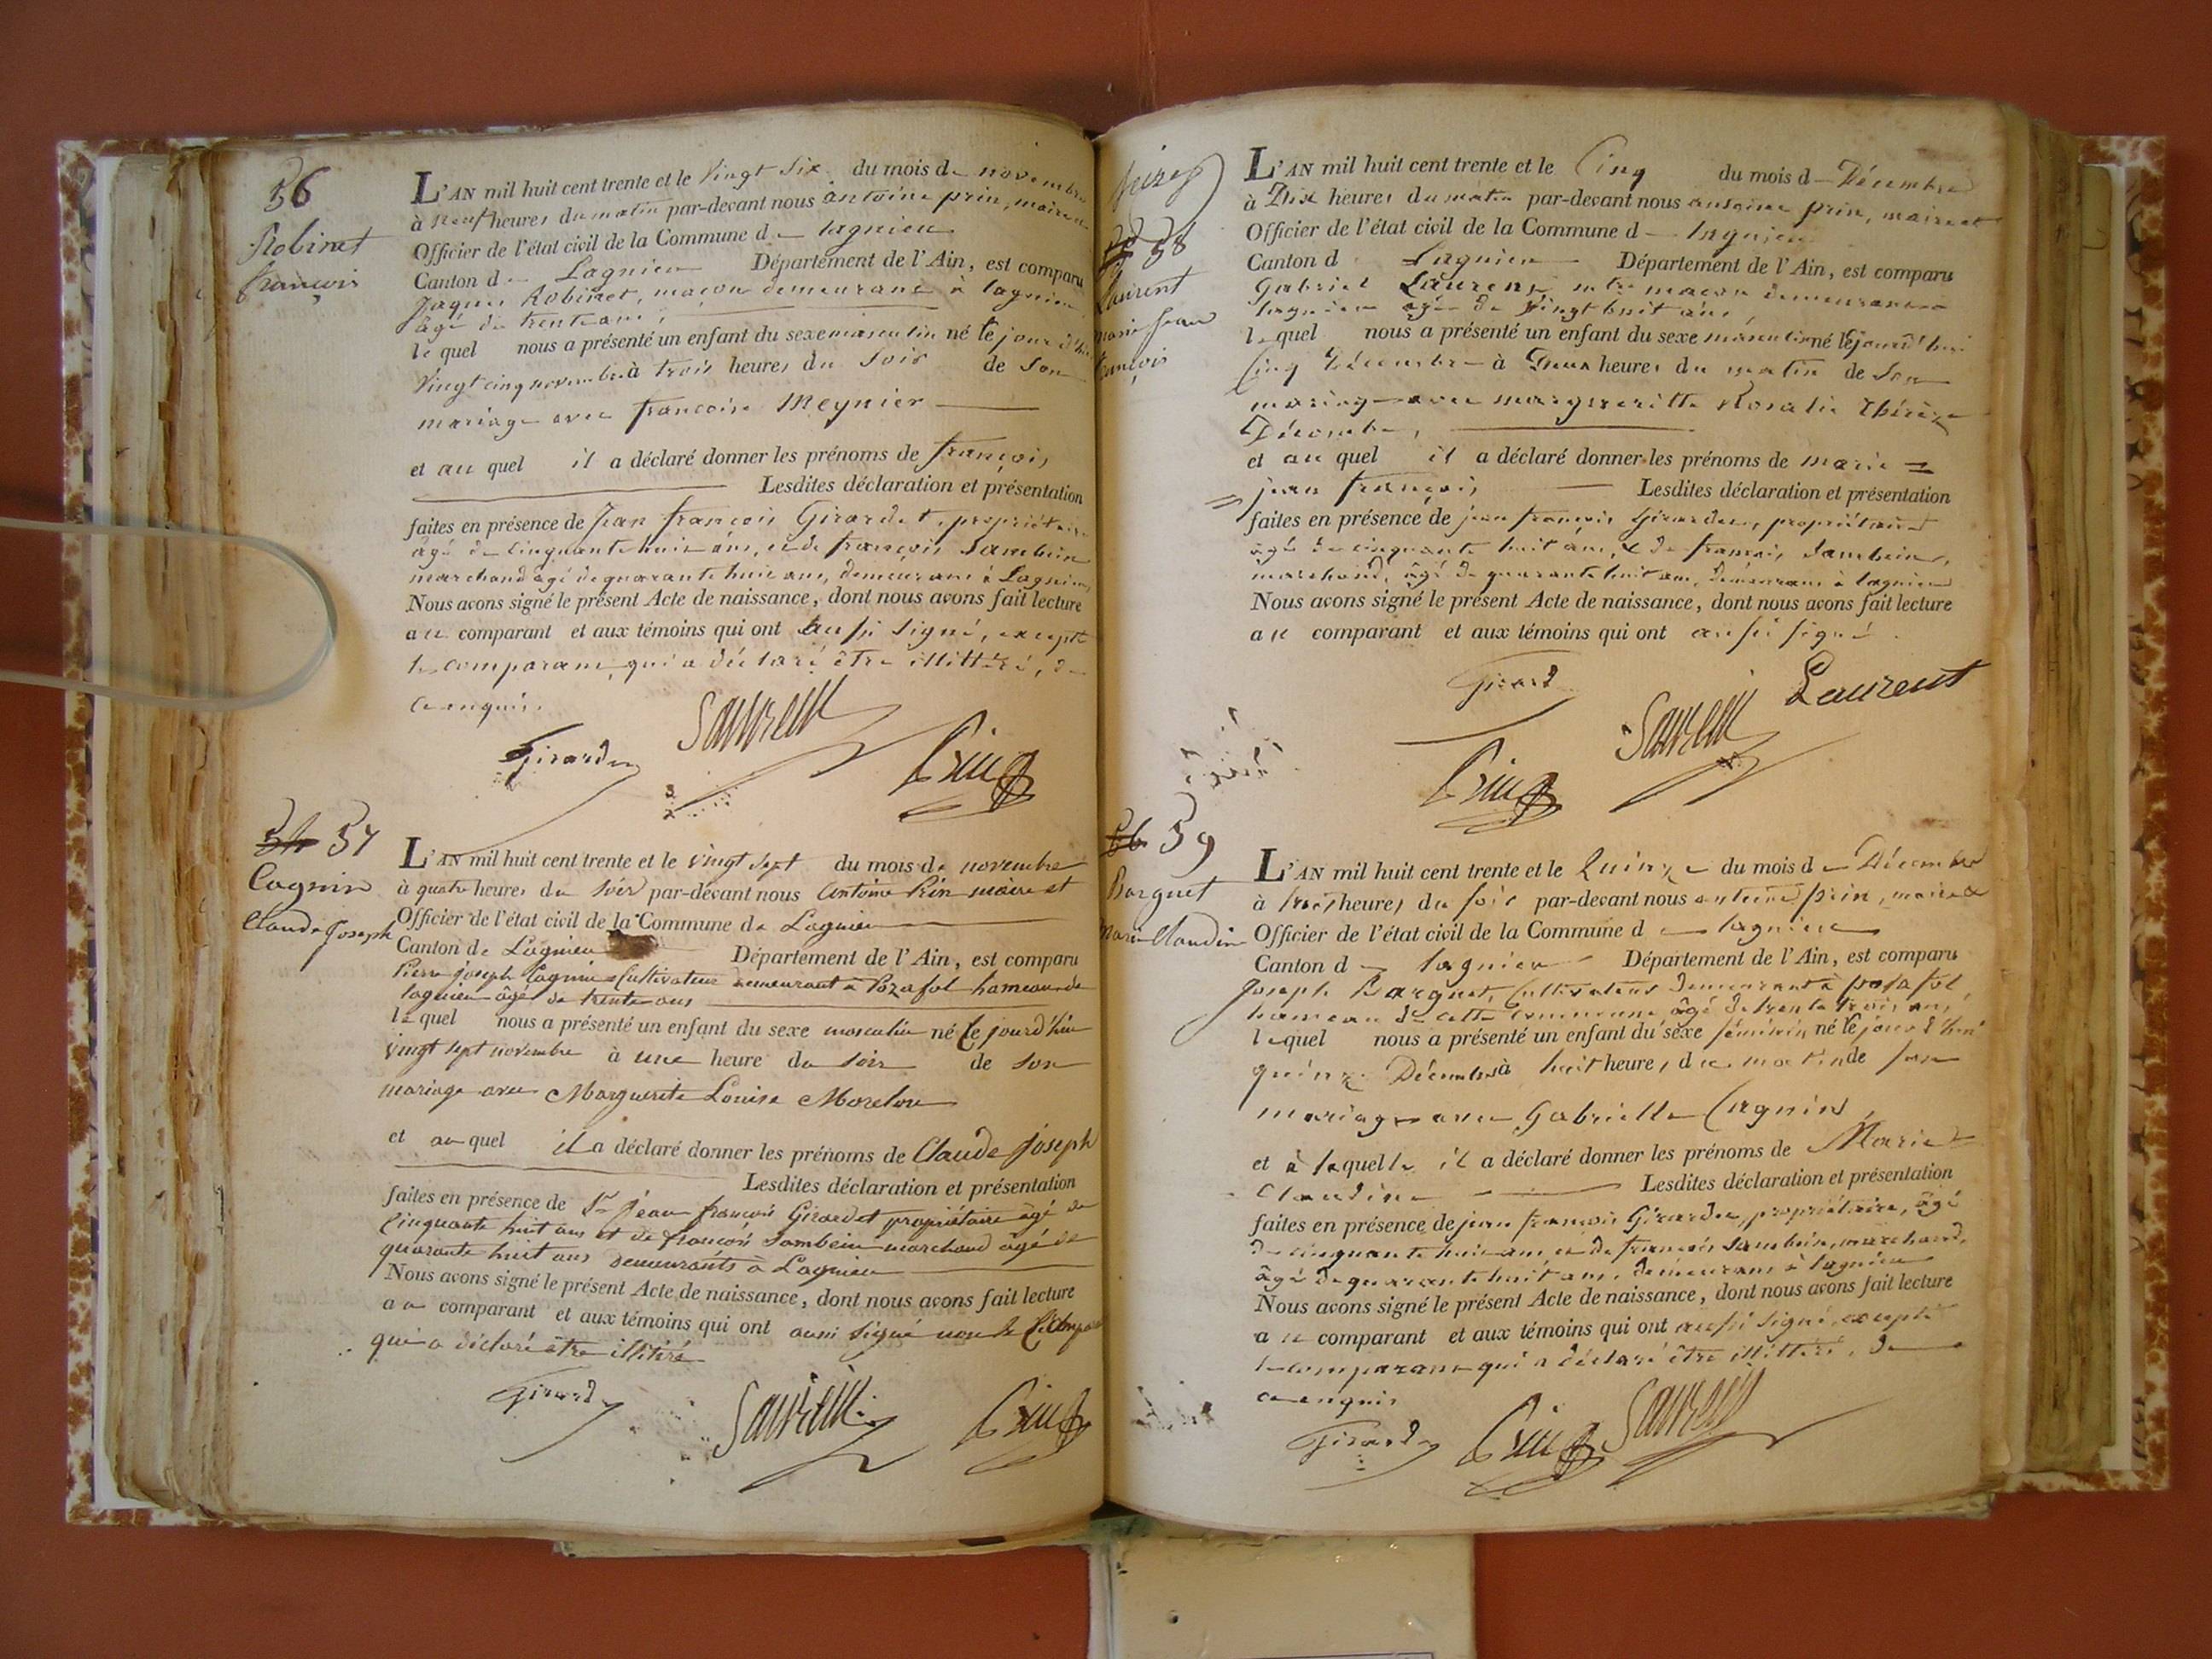 56
Robinet
françois
L'AN mil huit cent trente et le vingt six du mois de novembre
à neuf heures du matin par-devant nous antoine prin, maire et
Officier de l'état civil de la Commune de lagnieu
Canton de Lagnieu Département de l'Ain, est comparu
Jaques Robinet, maçon demeurant à lagnieu
âgé de trente ans,
lequel nous a présenté un enfant du sexe masculin né le jour d'hier
vingt cinq novembre à trois heures du soir de son
mariage avec françoise Meynier
et au quel il a déclaré donner les prénoms de françois
Lesdites déclaration et présentation
faites en présence de Jean françois Girardet, propriétaire
âgé de cinquante huit ans, et de françois Sambein
marchand âgé de quarante huit ans, demeurant à Lagnieu
Nous avons signé le présent Acte de naissance, dont nous avons fait lecture
au comparant et aux témoins qui ont aussi signé, excepté
le comparant qui a déclaré être illittéré, de
ce enquis.
Girardet
Prin
54 57
Cagnin
Claude Joseph
L'AN mil huit cent trente et le vingt sept du mois de novembre
à quatre heures du soir par-devant nous Antoine Prin maire et
Officier de l'état civil de la Commune de Lagnieu
Canton de Lagnieu Département de l'Ain, est comparu
Pierre joseph Cagnin Cultivateur demeurant à Pozafol hameau de
lagnieu âgé de trente ans
lequel nous a présenté un enfant du sexe masculin né le jourd'hui
vingt sept novembre à une heure du soir de son
mariage avec Marguerite Louise Morelon
et au quel il a déclaré donner les prénoms de Claude Joseph
Lesdites déclaration et présentation
faites en présence de Sr Jean françois Girardet propriétaire âgé de
cinquante huit ans et de françois Sambein marchand âgé de
quarante huit ans demeurants à Lagnieu
Nous avons signé le présent Acte de naissance, dont nous avons fait lecture
au comparant et aux témoins qui ont aussi signé non le Compar
qui a déclaré être illitéré
Girardet
Prin
58
Laurent
marie jean
françois
L'AN mil huit cent trente et le Cinq du mois de Décembre
à Dix heures du matin par-devant nous antoine prin, maire et
Officier de l'état civil de la Commune de lagnieu
Canton d Lagnieu Département de l'Ain, est comparu
Gabriel Laurent mtre maçon demeurant à
lagnieu âgé de vingt huit ans,
lequel nous a présenté un enfant du sexe masculin né le jourd'hui
Cinq Décembre à Deux heures du matin de son
mariage avec margueritte Rosalie Thérèze
Décombe,
et au quel il a déclaré donner les prénoms de marie =
= jean françois Lesdites déclaration et présentation
faites en présence de jean françois Girardet, propriétaire
âgé de cinquante huit ans, & de françois Sambein,
marchand, âgé de quarante huit ans, demeurant à lagnieu
Nous avons signé le présent Acte de naissance, dont nous avons fait lecture
au comparant et aux témoins qui ont aussi signé.
Girard
Laurent
Prin
56 59
Barquet
Marie Claudine
L'AN mil huit cent trente et le Quinze du mois de Décembre
à trois heures du soir par-devant nous antoine prin, maire &
Officier de l'état civil de la Commune de lagnieu
Canton de lagnieu Département de l'Ain, est comparu
Joseph Barquet, Cultivateur demeurant à posafol,
hameau de cette commune âgé de trente trois ans,
lequel nous a présenté un enfant du sexe féminin né le jourd'hui
quinze Décembre à huit heures du matin de son
mariage avec Gabrielle Cagnin
et à laquelle il a déclaré donner les prénoms de Marie
Claudine Lesdites déclaration et présentation
faites en présence de jean françois Girardet, propriétaire, âgé
de cinquante huit ans et de françois Sambein, marchand,
âgé de quarante huit ans, demeurans à lagnieu
Nous avons signé le présent Acte de naissance, dont nous avons fait lecture
au comparant et aux témoins qui ont aussi signé, excepté
le comparant qui a déclaré être illittéré, de
ce enquis
Girardet
Prin